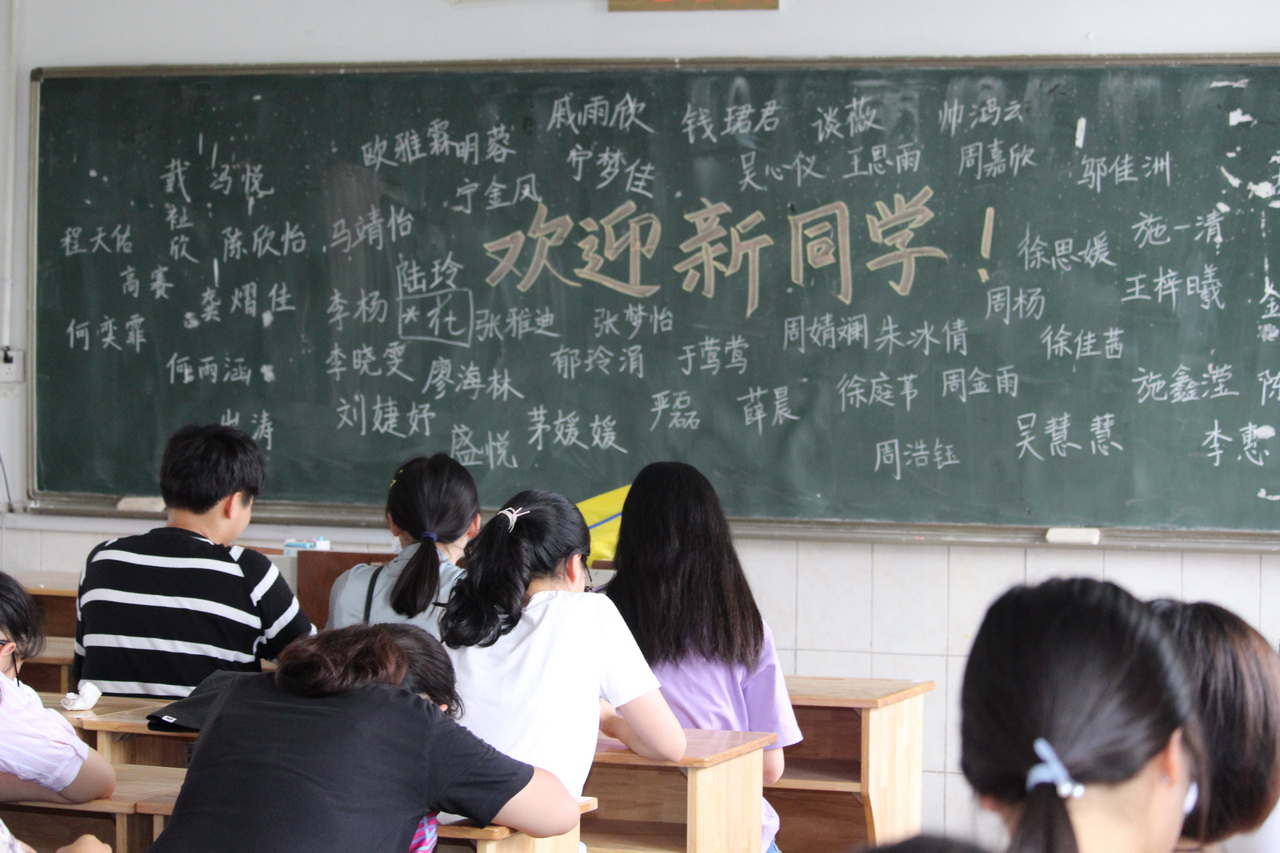 戚雨欣 钱珺君 谈薇 帅鸿云
欧雅霖 明蓉 宁梦佳 吴心仪 王思雨 周嘉欣 邬佳洲
戴祉欣 冯悦 宁金凤
程天佑 陈欣怡 马靖怡 欢迎新同学！ 徐思媛 施一清
高赛 陆玲 周杨 王梓曦
龚熠佳 李杨 张雅迪 张梦怡 周婧斓 朱冰倩 徐佳茜
何奕霏
何雨涵 李晓雯 廖海林 郁玲涓 于莺莺 徐庭苇 周金雨 施鑫滢
刘婕妤 茅媛媛 严磊 薛晨 吴慧慧 李惠
涛 盛悦 周浩钰